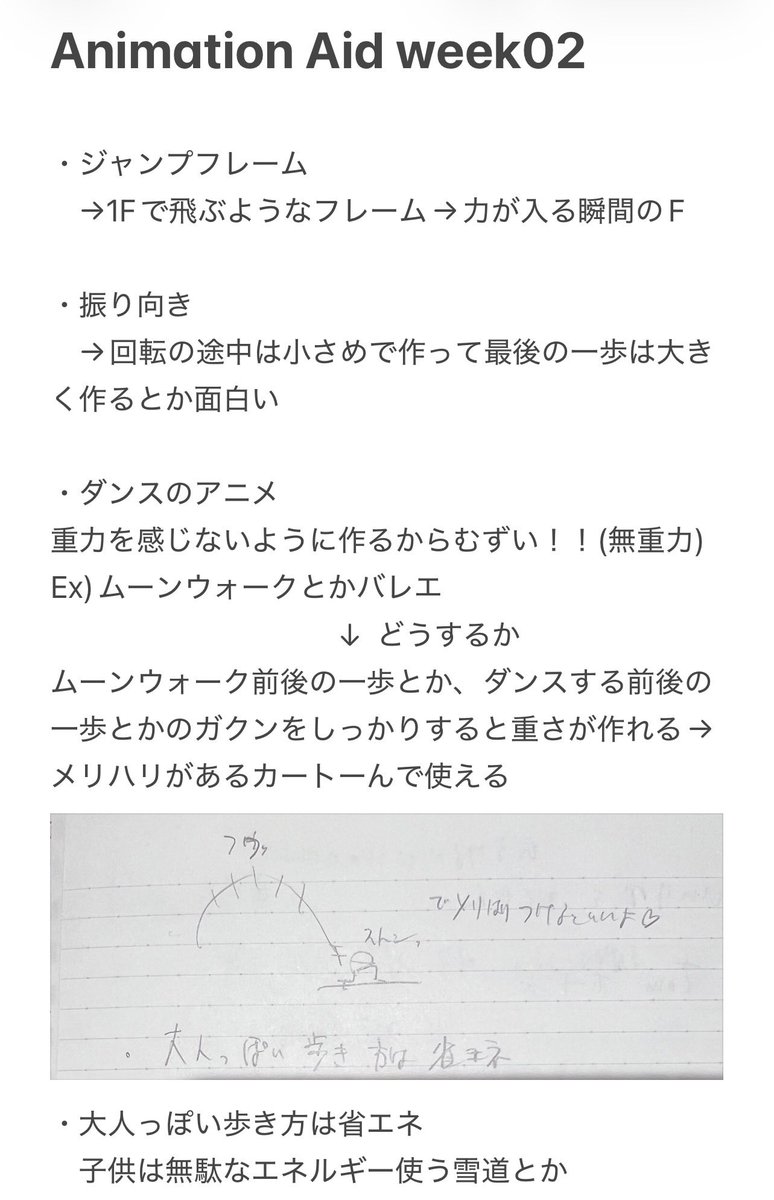 Animation Aid week02
・ジャンプフレーム
→1Fで飛ぶようなフレーム→力が入る瞬間のF
・振り向き
→回転の途中は小さめで作って最後の一歩は大き
く作るとか面白い
・ダンスのアニメ
重力を感じないように作るからむずい！！(無重力)
Ex)ムーンウォークとかバレエ
↓ どうするか
ムーンウォーク前後の一歩とか、ダンスする前後の
一歩とかのガクンをしっかりすると重さが作れる→
メリハリがあるカートーんで使える
フワッ
でメリはりつけるといいよ
ストンッ
・大人っぽい歩き方は省エネ
・大人っぽい歩き方は省エネ
子供は無駄なエネルギー使う雪道とか